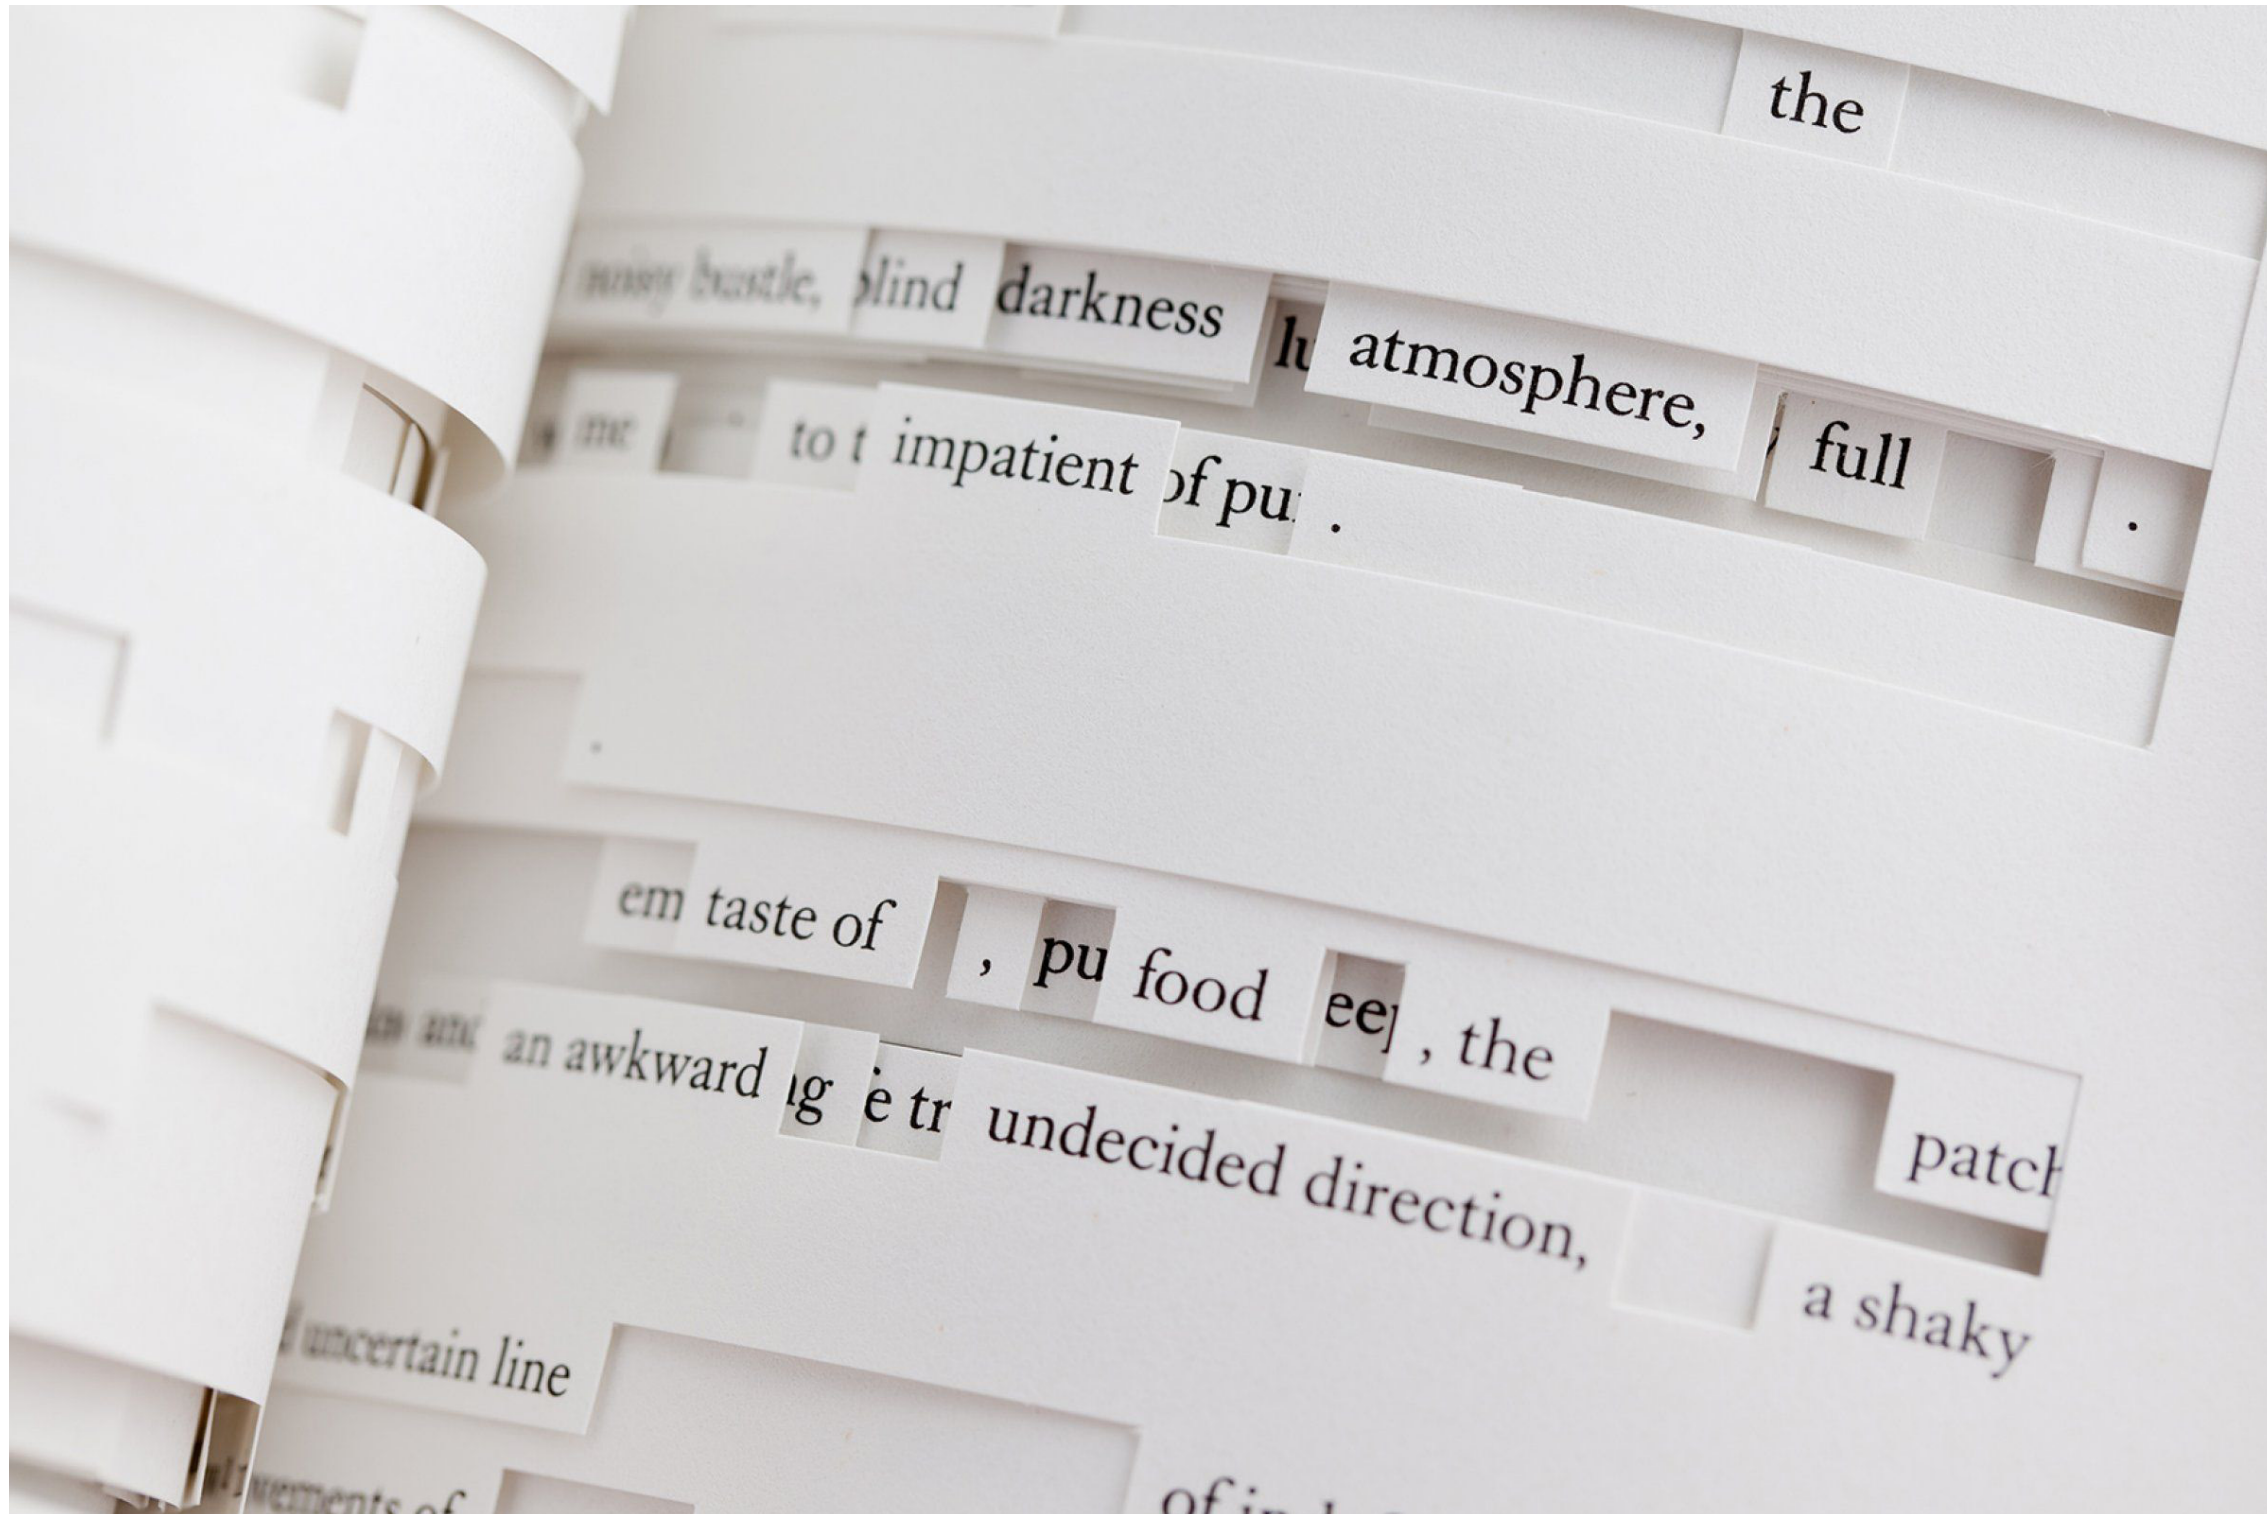 the
noisy bustle, blind darkness lu atmosphere, full .
me to t impatient of pu .
.
em taste of , pu food eep , the patch
and an awkward ng e tr undecided direction, a shaky
uncertain line
vements of of in